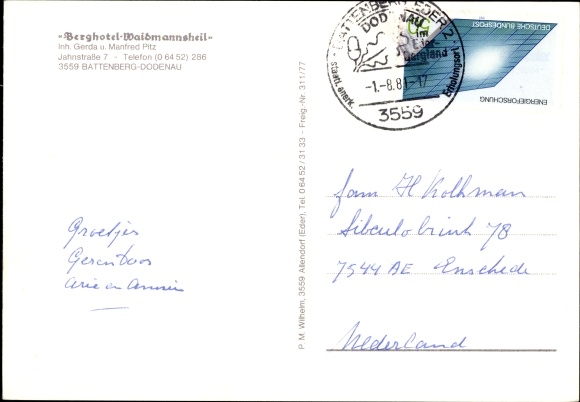 «Berghotel-Waidmannsheil»
Inh. Gerda u. Manfred Pitz
Jahnstraße 7 - Telefon (0 64 52) 286
3559 BATTENBERG-DODENAU
Groetjes
Ger en Doos
Arie en Annie
P. M. Wilhelm, 3559 Allendorf (Eder), Tel. 0 64 52 / 31 33 - Freig.-Nr. 311/77
BATTENBERG, EDER 2
DODENAU
im
Eder-
bergland
staatl. anerk.
Erholungsort
-1.-8.8 -17
3559
DEUTSCHE BUNDESPOST
ENERGIEFORSCHUNG
Fam H Kolkman
Sibculobrink 78
7544 AE Enschede
Nederland